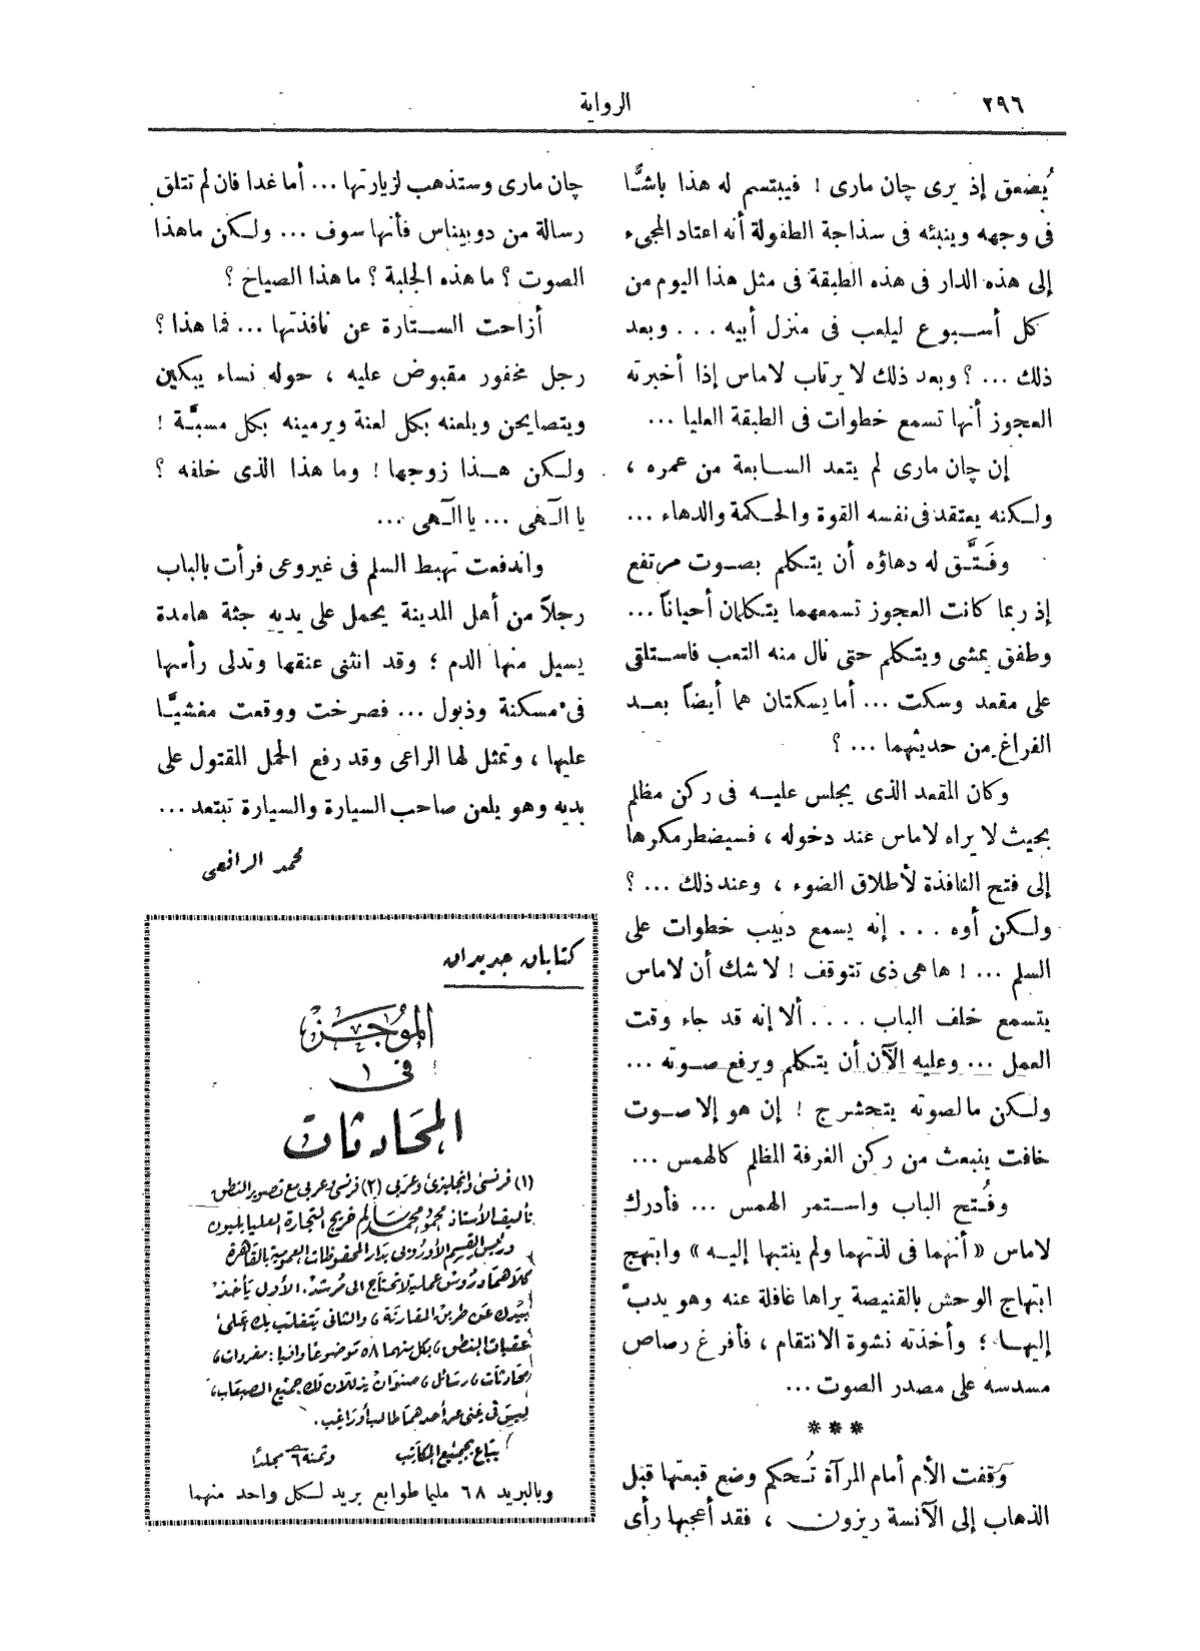 ٢٩٦
الرواية
يُضعق إذ يرى چان مارى ! فيبتسم له هذا باشًّا
فى وجهه وينبئه فى سذاجة الطفولة أنه اعتاد المجىء
إلى هذه الدار فى هذه الطبقة فى مثل هذا اليوم من
كل أسبوع ليلعب فى منزل أبيه ... وبعد
ذلك ... ؟ وبعد ذلك لا يرتاب لاماس إذا أخبرته
العجوز أنها تسمع خطوات فى الطبقة العليا ...
إن چان مارى لم يتعد السابعة من عمره ،
ولكنه يعتقد فى نفسه القوة والحكمة والدهاء ...
وفَتَّق له دهاؤه أن يتكلم بصوت مرتفع
إذ ربما كانت العجوز تسمعهما يتكلمان أحياناً ...
وطفق يمشى ويتكلم حتى نال منه التعب فاستلقى
على مقعد وسكت ... أما يسكتان هما أيضاً بعد
الفراغ من حديثهما ... ؟
وكان المقعد الذى يجلس عليه فى ركن مظلم
بحيث لا يراه لاماس عند دخوله ، فسيضطر مكرها
إلى فتح النافذة لأطلاق الضوء ، وعند ذلك ... ؟
ولكن أوه ... إنه يسمع دبيب خطوات على
السلم ... ! ها هى ذى تتوقف ! لا شك أن لاماس
يتسمع خلف الباب .... ألا إنه قد جاء وقت
العمل ... وعليه الآن أن يتكلم ويرفع صوته ...
ولكن ما لصوته يتحشرج ! إن هو إلا صوت
خافت ينبعث من ركن الغرفة المظلم كالهمس ...
وفُتح الباب واستمر الهمس ... فأدرك
لاماس « أنهما فى لذتهما ولم ينتبها إليه » وابتهج
ابتهاج الوحش بالقنيصة يراها غافلة عنه وهو يدبّ
إليها ؛ وأخذته نشوة الانتقام ، فأفرغ رصاص
مسدسه على مصدر الصوت ...
***
وقفت الأم أمام المرآة تُحكم وضع قبعتها قبل
الذهاب إلى الآنسة ريزون ، فقد أعجبها رأى
چان مارى وستذهب لزيارتها ... أما غدا فان لم تتلق
رسالة من دوبيناس فأنها سوف ... ولكن ما هذا
الصوت ؟ ما هذه الجلبة ؟ ما هذا الصياخ ؟
أزاحت الستارة عن نافذتها ... فما هذا ؟
رجل مخفور مقبوض عليه ، حوله نساء يبكين
ويتصايحن ويلعنه بكل لعنة ويرمينه بكل مسبَّة !
ولكن هذا زوجها ! وما هذا الذى خلفه ؟
يا الٓهى ... يا الٓهى ...
واندفعت تهبط السلم فى غير وعى فرأت بالباب
رجلاً من أهل المدينة يحمل على يديه جثة هامدة
يسيل منها الدم ؛ وقد انثنى عنقها وتدلى رأسها
فى مسكنة وذبول ... فصرخت ووقعت مغشيًّا
عليها ، وتمثل لها الراعى وقد رفع الحمل المقتول على
يديه وهو يلعن صاحب السيارة والسيارة تبتعد ...
محمد الرافعى
كتابان جديدان
الموُجَز
فى
المحَادثات
(١) فرنسى وانجليزى وعربى (٢) فرنسى وعربى مع تصوير النطق
تأليف الأستاذ محمود محمد سالم خريج التجارة العليا بليون
ورئيس القسم الأوروبى بدار المحفوظات العمومية بالقاهرة
كلاهما دروس عملية لا تحتاج الى مرشد. الأول يأخذ
بيدك عن طريق المقارنة ، والثانى يتغلب بك على
عقبات النطق ، بكل منهما ٥٨ موضوعا وافيا : مفردات ،
محادثات ، رسائل ، صنوان يذللان لك جميع الصعاب ،
ليس فى غنى عن أحدهما طالب أو راغب .
يباع بجميع المكاتب وثمنه ٦ مجلدًا
وبالبريد ٦٨ مليما طوابع بريد لكل واحد منهما